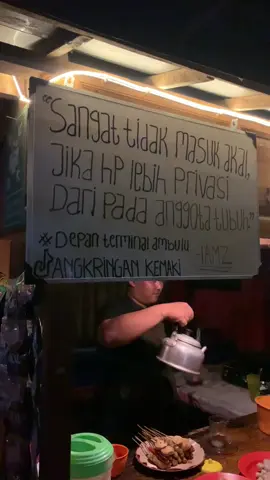 "Sangat tidak masuk akal,
Jika hp lebih privasi
Dari pada anggota tubuh"
# Depan terminal ambulu
ANGKRINGAN KEMAKI
-IAMZ